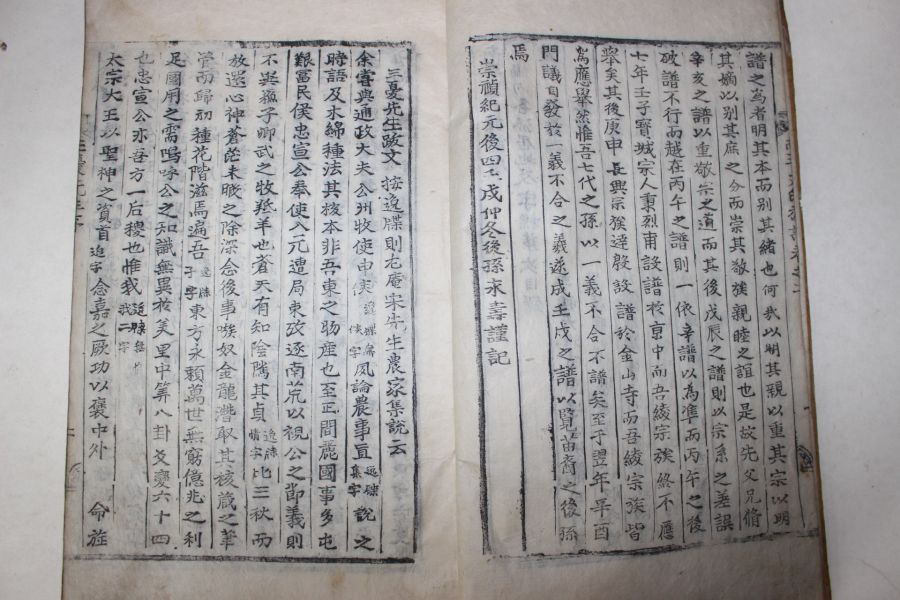 譜之爲者明其本而别其緒也何 我以明其親以重其宗以明
其嫡以别其庶之分而崇其敬族親睦之誼也是故先父兄脩
辛亥之譜以重敬宗之道而其後戊辰之譜則以宗系之差誤
破譜不行而越在丙午之譜則一依辛譜以爲準而丙午之後
七年壬子寶城宗人秉烈甫設譜於京中而吾綾宗族終不應
擧矣其後庚申 長興宗族達 設譜於金山寺而吾綾宗族皆
爲應擧然惟吾七代之孫以一義不合不譜矣至于翌年辛酉
門議自發於一義不合之義遂成壬戌之譜以覽苗裔之後孫
焉
崇禎紀元後四壬戌仲冬後孫永壽謹記
三憂先生跋文 按逸牒則尤庵宋先生農家集説云
余嘗與通政大夫公州牧使申 逸牒 字 風論農事宜 逸牒 集字 説之
時語及木綿種法其核本非吾東之物産也至正間麗國事多屯
艱富民侯忠宣公奉使入元遭局東攻逐南荒以視公之節義則
不與 子卿武之牧羝羊也 天有知陰隲其貞 逸牒 情字 比三秋而
放還心神蒼茫未 之除深念後事 奴金龍潛取其核藏之筆
管而歸初種花階滋焉遍吾 逸牒 子字 東方永賴萬世無窮億兆之利
足國用之需嗚呼公之知識無異於羑里中筭八卦爻變六十四
也忠宣公亦吾方一后稷也惟我 逸牒 我二字
太宗大王以聖神之資首 逸字 念嘉之厥功以褒中外 命旌